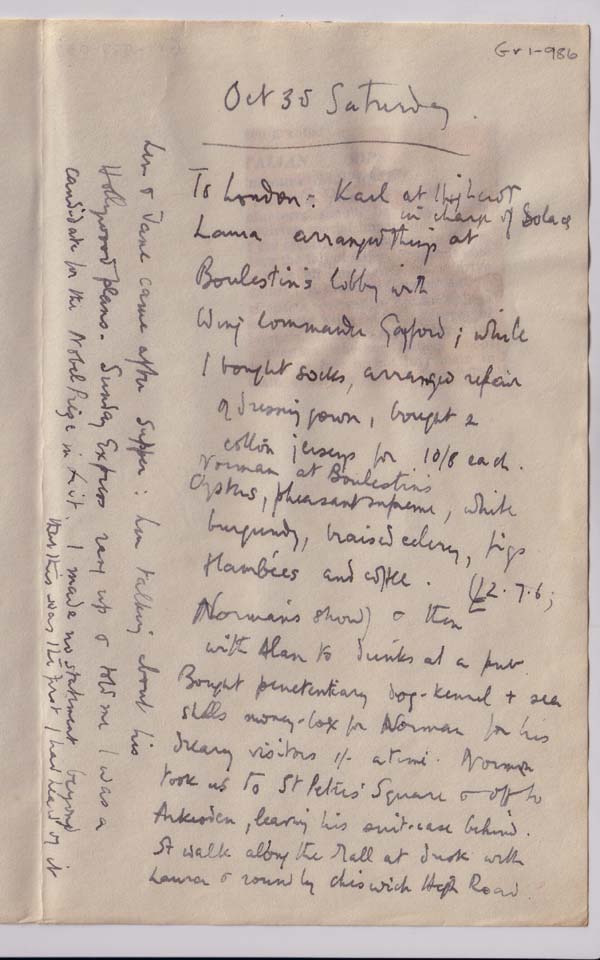 Gr1-986
Oct 30 Saturday.
To London: Karl at Highcroft
in charge of Solace
Laura arranged things at
Boulestin's lobby with
Wing Commander Gayford; while
I bought socks, arranged repair
of dressing gown, bought 2
cotton jerseys for 10/8 each.
Norman at Boulestin's
Oysters, pheasant supreme, white
burgundy, braised celery, figs
flambées and coffee. (£2.7.6;
Norman's show) & then
with Alan to drinks at a pub.
Bought penetentiary dog-kennel + sea
shells money-box for Norman for his
dreary visitors 1/- a time. Norman
took us to St Peters' Square & off to
, leaving his suit-case behind.
St walk along the Mall at dusk with
Laura & round by Chiswick High Road.
Len & Jane came after supper: Len talking about his
Hollywood plans. Sunday Express rang up & told me I was a
candidate for the Nobel Prize in Lit. I made no statement beyond
that this was the first I had heard of it